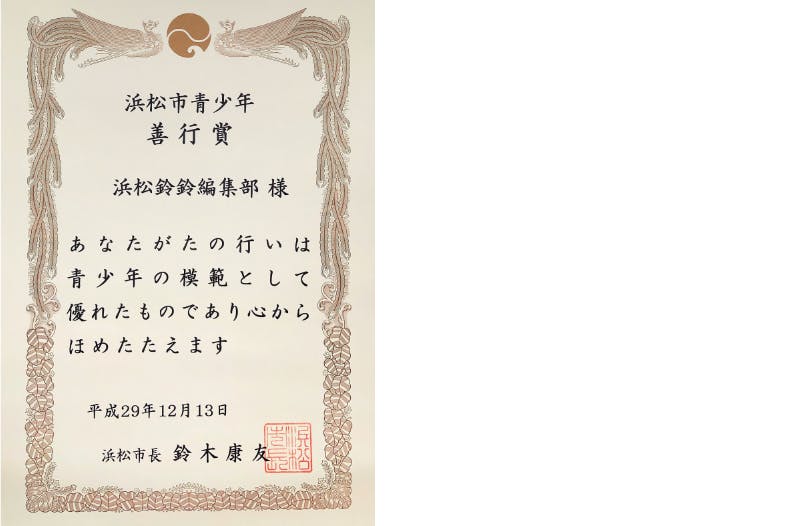 浜松市青少年
善行賞
浜松鈴鈴編集部 様
あなたがたの行いは
青少年の模範として
優れたものであり心から
ほめたたえます
平成29年12月13日
浜松市長 鈴木康友
浜松市長